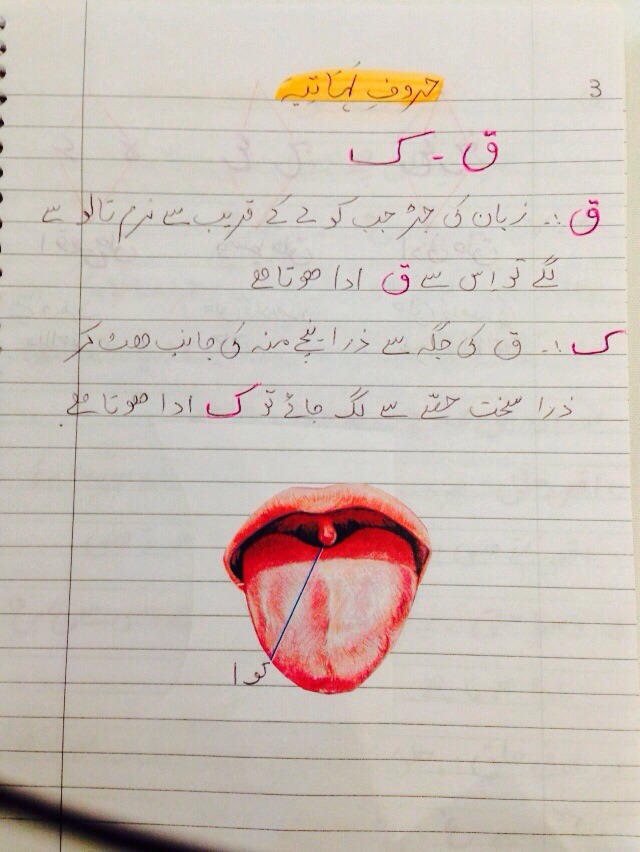 3
حروفِ لہاتیہ
ق - ک
ق :- زبان کی جڑ جب کوے کے قریب سے نرم تالو سے
لگے تو اِس سے ق ادا ہوتا ہے
ک :- ق کی جگہ سے ذرا نیچے منہ کی جانب ہٹ کر
ذرا سخت حصّے سے لگ جائے تو ک ادا ہوتا ہے۔
کوا